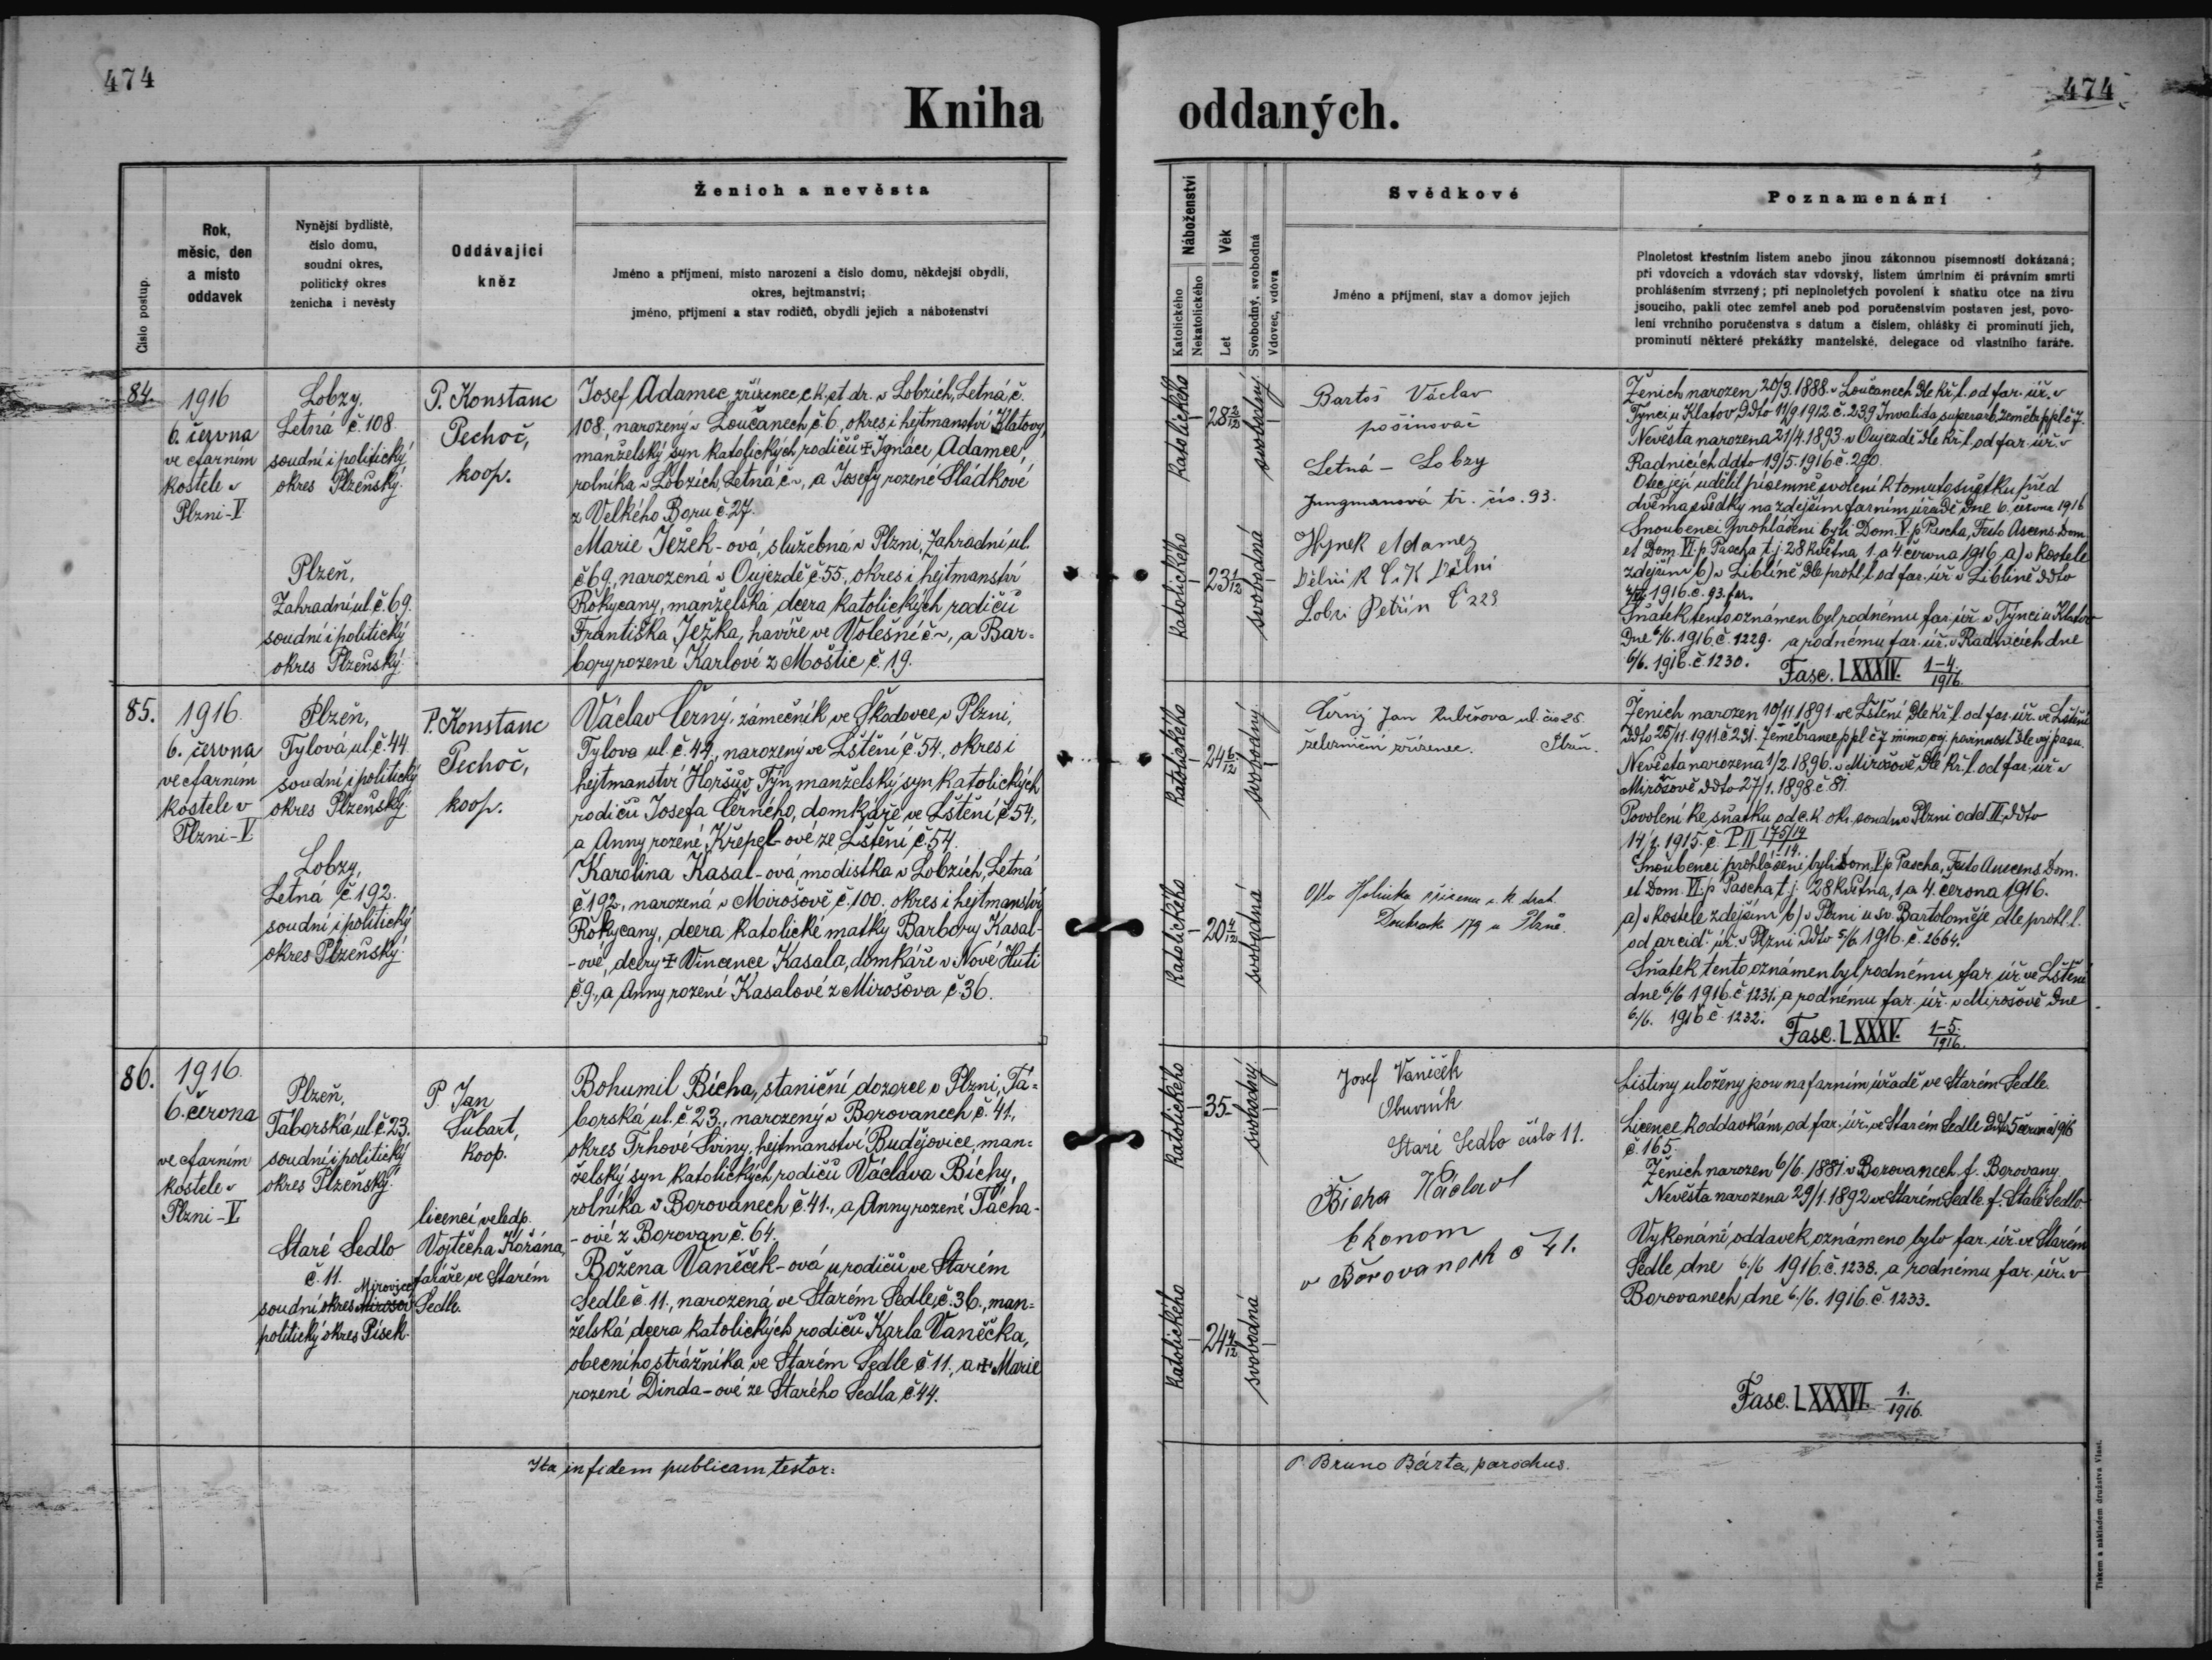 474
474
Kniha oddaných.
Číslo postup.
Rok,
měsíc, den
a místo
oddavek
Nynější bydliště,
číslo domu,
soudní okres,
politický okres
ženicha i nevěsty
Oddávající
kněz
Ženich a nevěsta
Jméno a příjmení, místo narození a číslo domu, někdejší obydlí,
okres, hejtmanství;
jméno, příjmení a stav rodičů, obydlí jejich a náboženství
Náboženství
Katolického
Nekatolického
Věk
Let
Svobodný, svobodná
Vdovec, vdova
Svědkové
Jméno a příjmení, stav a domov jejich
Poznamenání
Plnoletost křestním listem anebo jinou zákonnou písemností dokázaná;
při vdovcích a vdovách stav vdovský, listem úmrtním či právním smrti
prohlášením stvrzený; při neplnoletých povolení k sňatku otce na živu
jsoucího, pakli otec zemřel aneb pod poručenstvím postaven jest, povo-
lení vrchního poručenstva s datum a číslem, ohlášky či prominutí jich,
prominutí některé překážky manželské, delegace od vlastního faráře.
84.
1916
6. června
ve farním
kostele v
Plzni-V
Lobzy.
Letná č. 108.
soudní i politický
okres Plzeňský.
Plzeň,
Zahradní ul. č. 69.
soudní i politický
okres Plzeňský.
P. Konstanc
Pechoč,
koop.
Josef Adamec, zřízenec c.k. st. dr. v Lobzích, Letná, č.
108., narozený v Loučanech č. 6., okres i hejtmanství Klatovy,
manželský syn katolických rodičů ✝ Ignáce Adamce,
rolníka v Lobzích, Letná, č ~, a Josefy rozené Sládkové
z Velkého Boru č. 27.
Marie Ježek-ová, služebná v Plzni, Zahradní ul.
č. 69., narozená v Oujezdě č. 55., okres i hejtmanství
Rokycany, manželská dcera katolických rodičů
Františka Ježka, havíře ve Volešní č ~, a Bar-
bory rozené Karlové z Moštic č. 19.
katolického
28 2/12
svobodný
katolického
23 1/12
svobodná
Bartoš Václav
pošinovač
Letná - Lobzy
Jungmanová tř. čís. 93.
Hynek Adamez
Dělník
Ženich narozen 20/3. 1888. v Loučanech dle kř. l. od far. úř. v
Týnci u Klatov ddto 11/9 1912. č. 239. Invalida
Nevěsta narozena 21/4. 1893. v Oujezdě dle kř. l. od far. úř. v
Radnicích ddto 19/5. 1916 č. 290.
Otec její udělil písemně svolení k tomuto sňatku před
dvěma svědky na zdejším farním úřadě dne 6. června 1916
Snoubenci prohlášeni byli Dom. V. p. Pascha, Festo Ascens. Dom.
et Dom. VI. p. Pascha t. j. 28 května, 1. a 4 června 1916 a) v kostele
zdejším b) v Liblíně dle prohl. l. od far. úř. v Liblíně ddto
1916. č. 93.
Sňatek tento oznámen byl rodnému far. úř. v Týnci u Klatov
dne 6/6. 1916. č. 1229. a rodnému far. úř. v Radnicích dne
6/6. 1916. č. 1230. Fasc. LXXXIV. 1-4./1916.
85.
1916.
6. června
ve farním
kostele v
Plzni-V
Plzeň,
Tylová ul. č. 44.
soudní i politický
okres Plzeňský.
Lobzy,
Letná č. 192.
soudní i politický
okres Plzeňský.
P. Konstanc
Pechoč,
koop.
Václav Černý, zámečník ve Škodovce v Plzni,
Tylova ul. č. 44, narozený ve Lštění č. 54., okres i
hejtmanství Horšův Týn, manželský syn katolických
rodičů Josefa Černého, domkáře ve Lštění č. 54.,
a Anny rozené Křepel-ové ze Lštění č. 54.
Karolina Kasal-ová, modistka v Lobzích, Letná
č. 192., narozená v Mirošově č. 100. okres i hejtmanství
Rokycany, dcera katolické matky Barbory Kasal-
-ové, dcery ✝ Vincence Kasala, domkáře v Nové Huti
č. 9., a Anny rozené Kasalové z Mirošova č. 36.
katolického
24 6/12
svobodný
katolického
20 4/12
svobodná
Černý Jan
železniční zřízenec. Plzeň.
Ženich narozen 10/11 1891 ve Lštění dle kř. l. od far. úř. ve Lštění
ddto 25/11. 1911. č. 231.
Nevěsta narozena 1/2. 1896. v Mirošově dle kř. l. od far. úř. v
Mirošově ddto 27/1. 1898 č. 81.
Povolení ke sňatku od c. k. okr. soudu v Plzni odd. II., ddto
1915. č. P II 175/14
Snoubenci prohlášeni byli Dom. V. p. Pascha, Festo Ascens. Dom.
et Dom. VI. p. Pascha t. j. 28 května, 1. a 4. června 1916.
a) v kostele zdejším b) v Plzni u sv. Bartoloměje dle prohl. l.
od arcid. úř. v Plzni ddto 5/6. 1916. č. 2664.
Sňatek tento oznámen byl rodnému far. úř. ve Lštění
dne 6/6 1916. č. 1231. a rodnému far. úř. v Mirošově dne
6/6. 1916 č. 1232. Fasc. LXXXV. 1-5./1916.
86.
1916.
6. června
ve farním
kostele v
Plzni-V
Plzeň,
Táborská ul. č. 23.
soudní i politický
okres Plzeňský.
Staré Sedlo
č. 11.
Mirovice
soudní okres
politický okres Písek.
P. Jan
Šubart,
koop.
licencí veledp.
Vojtěcha Kořána,
faráře ve Starém
Sedle.
Bohumil Bícha, staniční dozorce v Plzni, Tá-
borská ul. č. 23., narozený v Borovanech č. 41.,
okres Trhové Sviny, hejtmanství Budějovice, man-
želský syn katolických rodičů Václava Bíchy,
rolníka v Borovanech č. 41., a Anny rozené Tácha-
-ové z Borovan č. 64.
Božena Vaněček-ová u rodičů ve Starém
Sedle č. 11., narozená ve Starém Sedle č. 36., man-
želská dcera katolických rodičů Karla Vaněčka,
obecního strážníka ve Starém Sedle č. 11., a ✝ Marie
rozené Dinda-ové ze Starého Sedla č. 44.
katolického
35
svobodný
katolického
24 4/12
svobodná
Josef Vaněček
Obuvník
Staré Sedlo číslo 11.
Bícha Václav
Ekonom
v Borovanech č 41.
Listiny uloženy jsou na farním úřadě ve Starém Sedle.
Licence k oddavkám od far. úř. ve Starém Sedle ddto 5 června 1916
č. 165.
Ženich narozen 6/6. 1881. v Borovanech f. Borovany
Nevěsta narozena 29/1. 1892 ve Starém Sedle f. Staré Sedlo
Vykonání oddavek oznámeno bylo far. úř. ve Starém
Sedle dne 6/6 1916. č. 1238. a rodnému far. úř. v
Borovanech dne 6./6. 1916. č. 1233.
Fasc. LXXXVI. 1./1916.
Ita in fidem publicam testor:
P Bruno Bárta, parochus.
Tiskem a nákladem družstva Vlast.